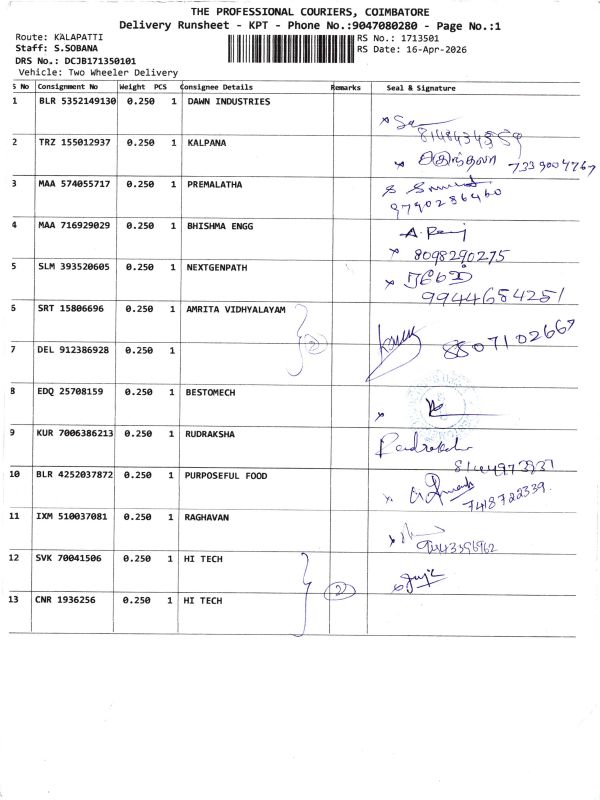 THE PROFESSIONAL COURIERS, COIMBATORE
Delivery Runsheet - KPT - Phone No.:9047080280 - Page No.:1
Route: KALAPATTI
RS No.: 1713501
Staff: S.SOBANA
RS Date: 16-Apr-2026
DRS No.: DCJB171350101
Vehicle: Two Wheeler Delivery
S No Consignment No Weight PCS Consignee Details Remarks Seal & Signature
1 BLR 5352149130 0.250 1 DAWN INDUSTRIES
2 TRZ 155012937 0.250 1 KALPANA
7339004767
3 MAA 574055717 0.250 1 PREMALATHA
9790286460
4 MAA 716929029 0.250 1 BHISHMA ENGG
A. Raj
8098290275
5 SLM 393520605 0.250 1 NEXTGENPATH
9944684251
6 SRT 15806696 0.250 1 AMRITA VIDHYALAYAM
2
8807102667
7 DEL 912386928 0.250 1
8 EDQ 25708159 0.250 1 BESTOMECH
9 KUR 7006386213 0.250 1 RUDRAKSHA
10 BLR 4252037872 0.250 1 PURPOSEFUL FOOD
7418722339.
11 IXM 510037081 0.250 1 RAGHAVAN
12 SVK 70041506 0.250 1 HI TECH
2
13 CNR 1936256 0.250 1 HI TECH